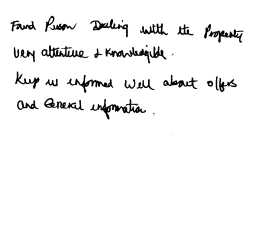 Found Person Dealing with the Property
very attentive & Knowledgible.
Keep us informed well about offers
and General information.